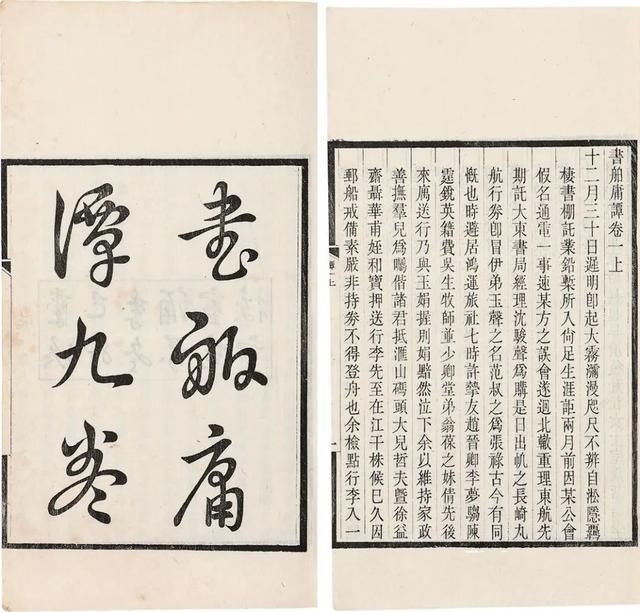 書舶庸
譚九卷
書舶庸譚卷一上
十二月三十日遲明卽起大霧瀰漫咫尺不辨自淞隱羈
棲書棚託業鉛槧所入尙足生涯詎兩月前因某公會
假名通電一事速某方之誤會遂遏北轍重理東航先
期託大東書局經理沈駿聲爲購是日出帆之長崎九
航行劵卽冒伊弟玉聲之名范叔之爲張祿古今有同
慨也時避居鴻運旅社七時許摯友趙晉卿李夢騶陳
霆銳英籍費吳生牧師並少卿堂弟翁葆之妹倩先後
來寓送行乃與玉娟握別娟黯然泣下余以維持家政
善撫羣兒爲囑偕諸君抵滙山碼頭大兒哲夫曁徐益
齋聶華甫姪和寶押送行李先至在江干株候已久因
郵船戒備素嚴非持劵不得登舟也余檢點行李入一